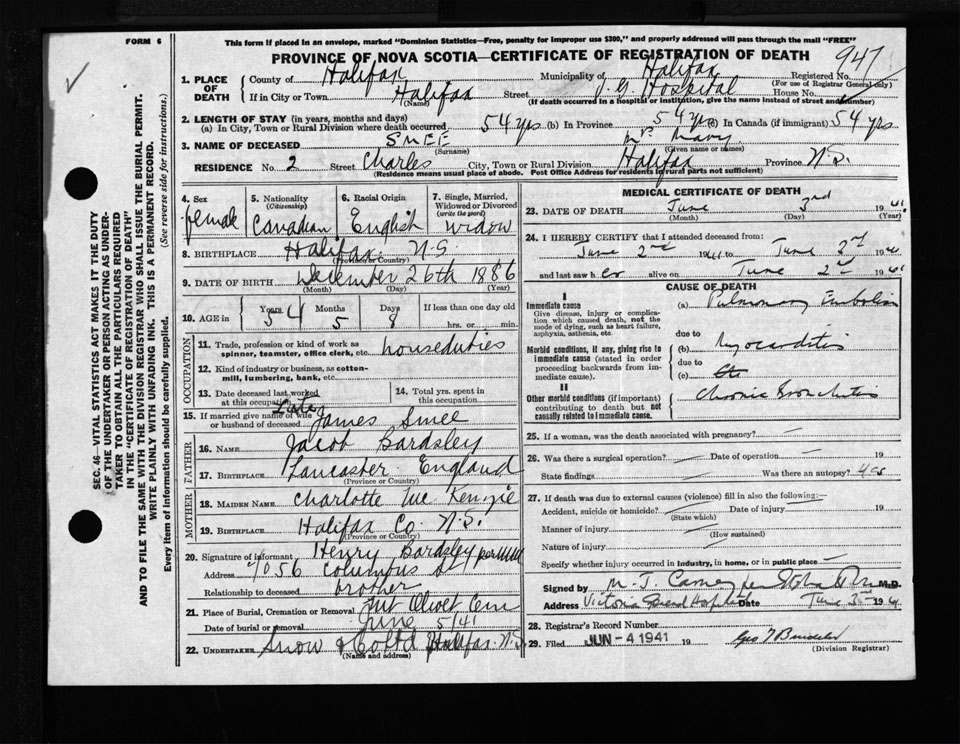 FORM 6
This form if placed in an envelope, marked "Dominion Statistics—Free, penalty for improper use $300," and properly addressed will pass through the mail "FREE"
PROVINCE OF NOVA SCOTIA—CERTIFICATE OF REGISTRATION OF DEATH
947
1. PLACE OF DEATH
County of Halifax Municipality of Halifax Registered No.
(For use of Registrar General only)
If in City or Town Halifax Street V. G. Hospital House No.
(Name) (If death occurred in a hospital or institution, give the name instead of street and number)
2. LENGTH OF STAY (in years, months and days)
(a) In City, Town or Rural Division where death occurred 54 yrs (b) In Province 54 yrs (c) In Canada (if immigrant) 54 yrs
3. NAME OF DECEASED SMEE Mrs Mary
(Surname) (Given name or names)
RESIDENCE No. 2 Street Charles City, Town or Rural Division Halifax Province N.S.
(Residence means usual place of abode. Post Office Address for residents in rural parts not sufficient)
4. Sex female
5. Nationality (Citizenship) Canadian
6. Racial Origin English
7. Single, Married, Widowed or Divorced (write the word) widow
8. BIRTHPLACE Halifax N.S.
(Province or Country)
9. DATE OF BIRTH December 26th 1886
(Month) (Day) (Year)
10. AGE in Years 54 Months 5 Days 8 If less than one day old hrs. or min.
OCCUPATION
11. Trade, profession or kind of work as spinner, teamster, office clerk, etc. houseduties
12. Kind of industry or business, as cotton-mill, lumbering, bank, etc.
13. Date deceased last worked at this occupation
14. Total yrs. spent in this occupation
15. If married give name of wife or husband of deceased Late James Smee
FATHER
16. NAME Jacob Bardsley
17. BIRTHPLACE Lancaster England
(Province or Country)
MOTHER
18. MAIDEN NAME Charlotte McKenzie
19. BIRTHPLACE Halifax Co. N.S.
(Province or Country)
20. Signature of informant Henry Bardsley per
Address 7056 Columbus St
Relationship to deceased brother
21. Place of Burial, Cremation or Removal Mt Olivet Cem
Date of burial or removal June 5/41
22. UNDERTAKER Snow & Co Ltd Halifax N.S.
(Name and address)
MEDICAL CERTIFICATE OF DEATH
23. DATE OF DEATH June 3rd 1941
(Month) (Day) (Year)
24. I HEREBY CERTIFY that I attended deceased from:
June 2nd 1941 to June 2nd 1941
and last saw her alive on June 2nd 1941
CAUSE OF DEATH
I
Immediate cause
Give disease, injury or complication which caused death, not the mode of dying, such as heart failure, asphyxia, asthenia, etc.
(a) Pulmonary Embolism
due to
Morbid conditions, if any, giving rise to immediate cause (stated in order proceeding backwards from immediate cause).
(b) Myocarditis
due to
(c)
II
Other morbid conditions (if important) contributing to death but not causally related to immediate cause.
Chronic Bronchitis
25. If a woman, was the death associated with pregnancy? —
26. Was there a surgical operation? — Date of operation — 19
State findings Was there an autopsy? yes
27. If death was due to external causes (violence) fill in also the following:—
Accident, suicide or homicide? Date of injury 19
(State which)
Manner of injury
(How sustained)
Nature of injury
Specify whether injury occurred in industry, in home, or in public place —
Signed by M. J. Carney per M.D.
Address Victoria General Hospital Date June 3rd 1941
28. Registrar's Record Number
29. Filed JUN -4 1941 19
(Division Registrar)
SEC. 46—VITAL STATISTICS ACT MAKES IT THE DUTY
OF THE UNDERTAKER OR PERSON ACTING AS UNDER-
TAKER TO OBTAIN ALL THE PARTICULARS REQUIRED
IN THE "CERTIFICATE OF REGISTRATION OF DEATH"
AND TO FILE THE SAME WITH THE DIVISION REGISTRAR WHO SHALL ISSUE THE BURIAL PERMIT.
WRITE PLAINLY WITH UNFADING INK. THIS IS A PERMANENT RECORD.
Every item of information should be carefully supplied. (See reverse side for instructions.)